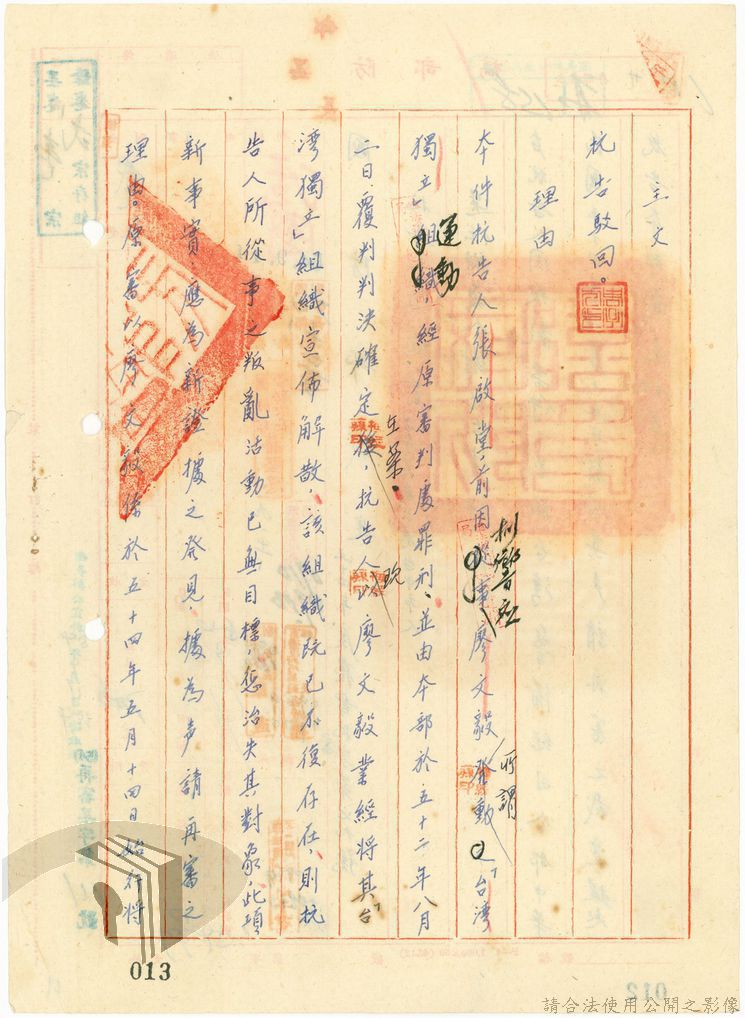 主文
抗告駁回。
理由
本件抗告人張啟堂,前因從事廖文毅發動之「台灣
響應
所謂
獨立」組織,經原審判處罪刑、並由本部於五十二年八月
運動
二日覆判判決確定後,抗告人以廖文毅業經將其「台
在案。
玆
灣獨立」組織宣佈解散,該組織既已不復存在,則抗
告人所從事之叛亂活動已無目標,懲治失其對象,此項
新事實應為新證據之發見,據為声請再審之
理由。原審以廖文毅係於五十四年五月十四日始行將
013
012
請合法使用公開之影像